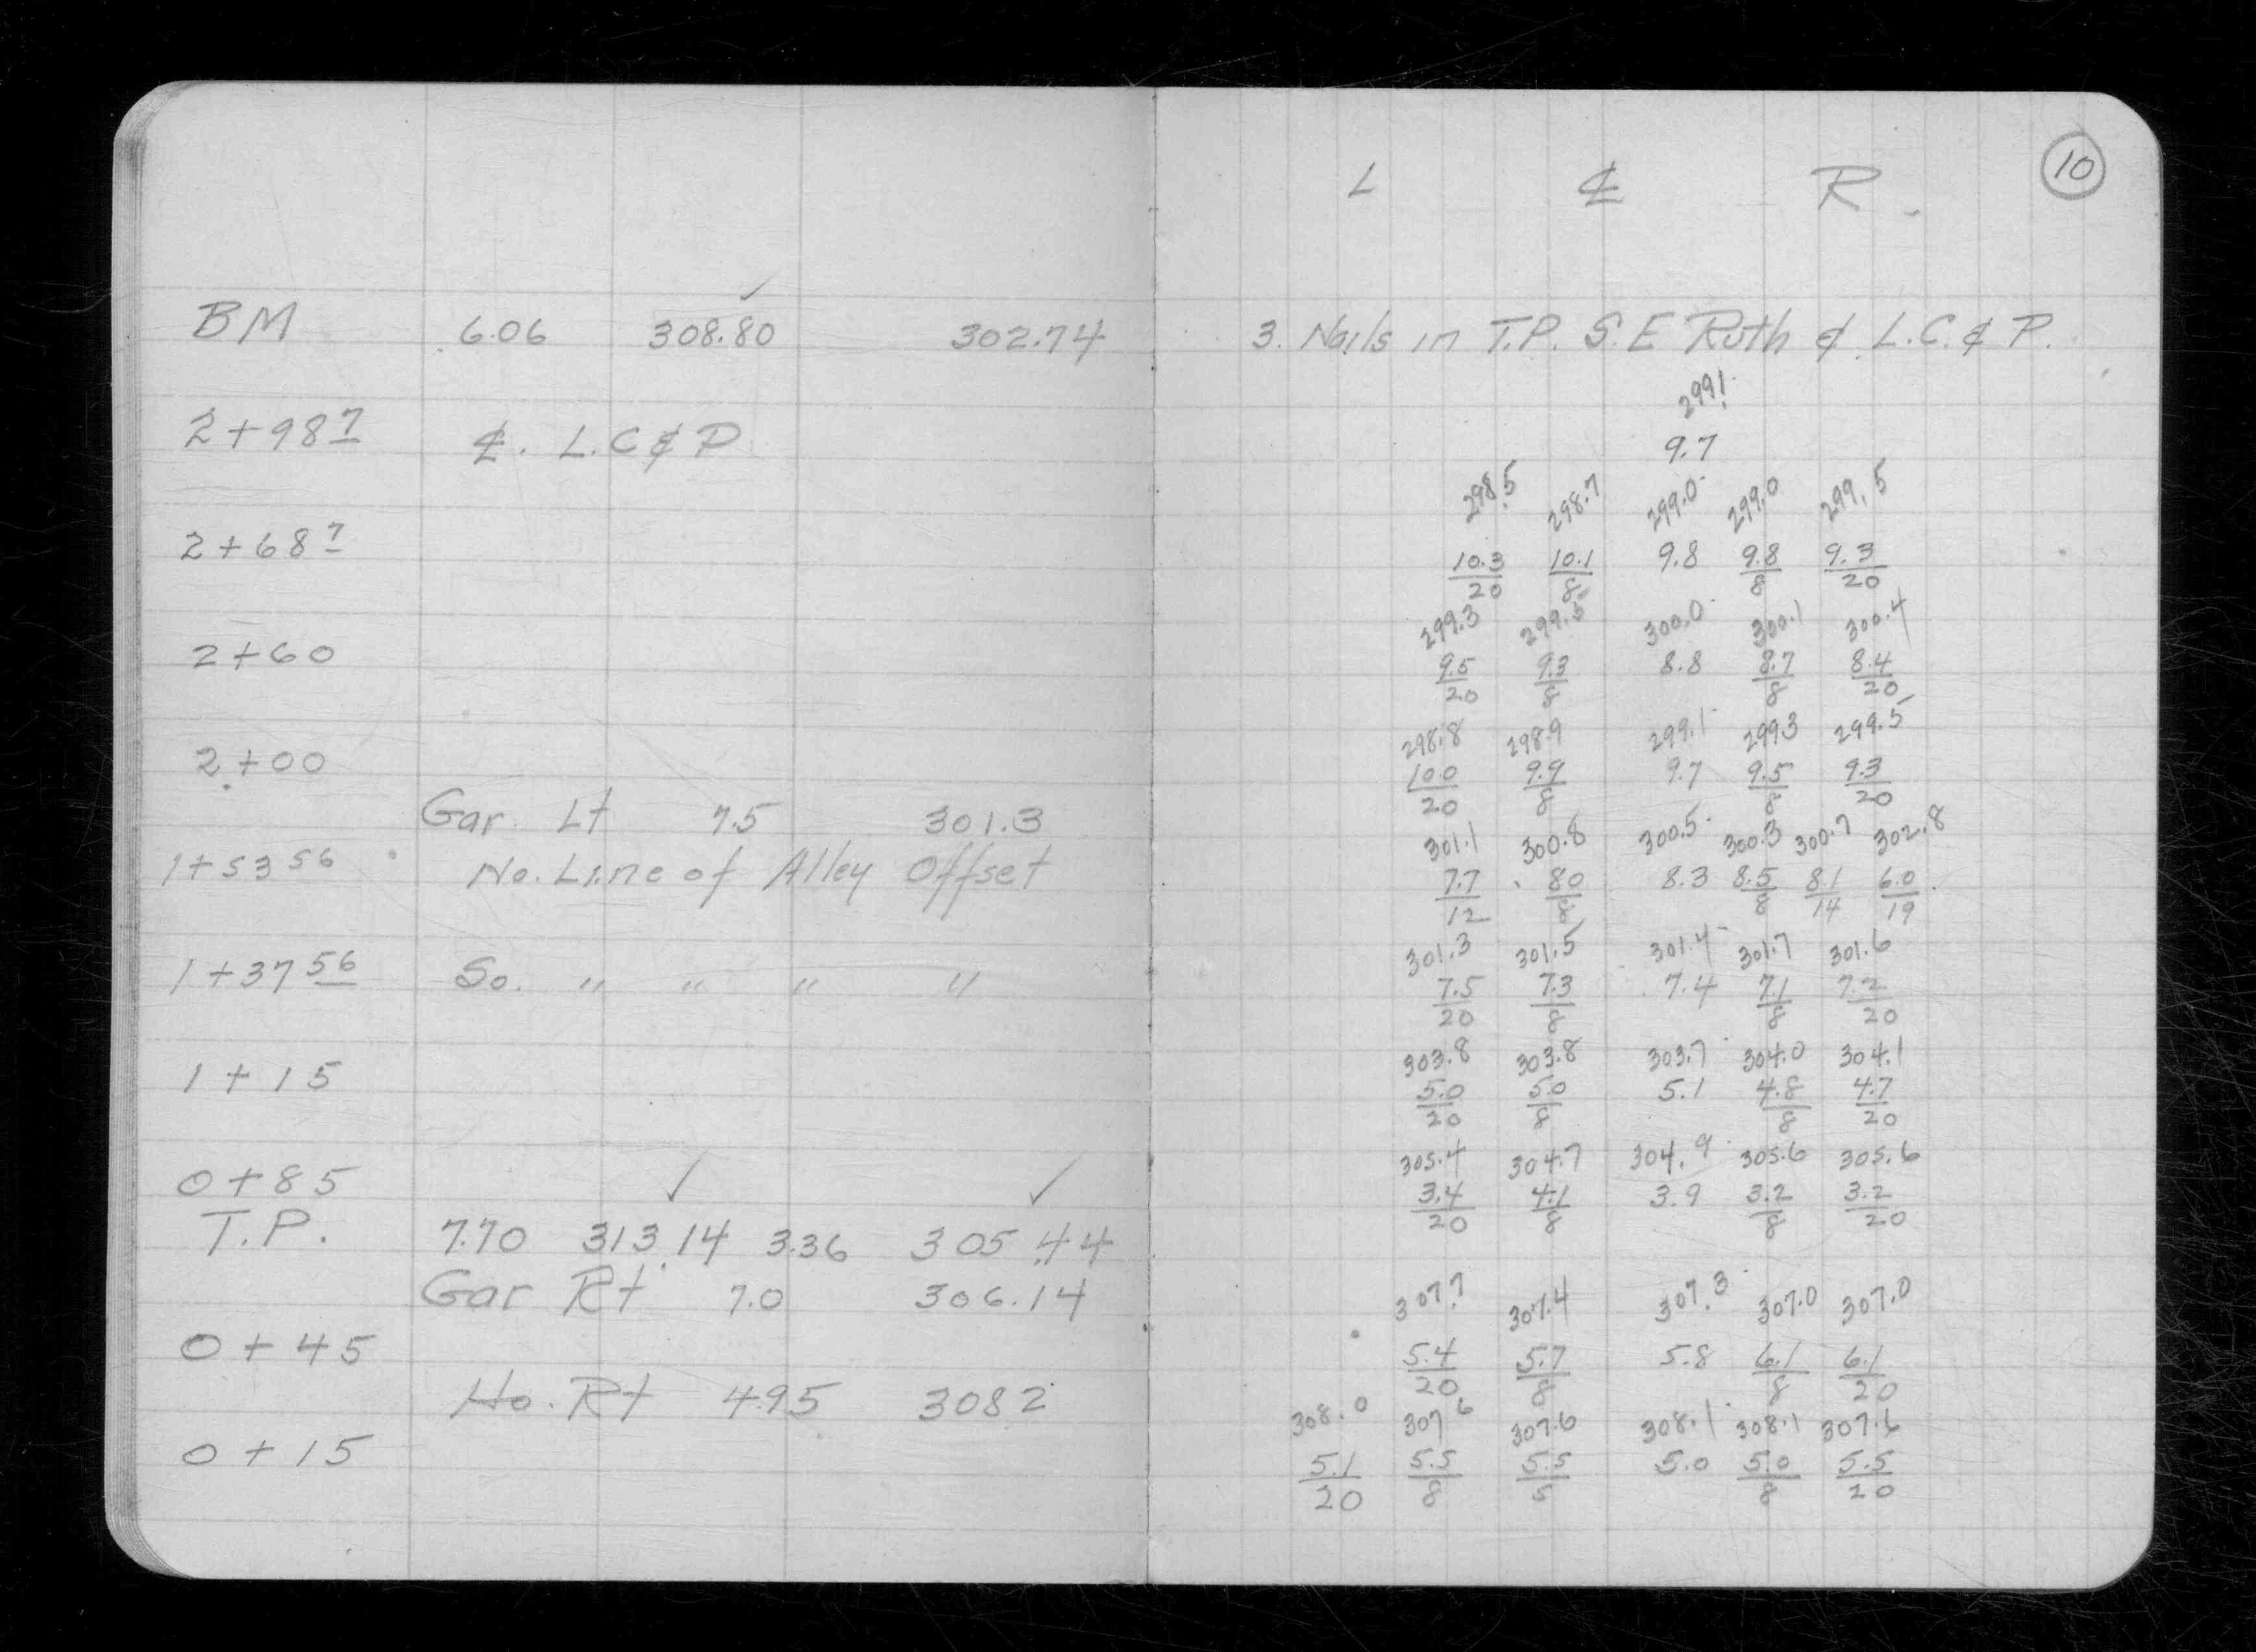 10
L ℄ R.
BM 6.06 308.80 302.74 3. Nails in T.P. S.E Ruth & L.C. & P.
299.1
2+98 7 ℄. L.C & P 9.7
298.5 298.7 299.0 299.0 299.5
2+68 7 10.3/20 10.1/8 9.8 9.8/8 9.3/20
299.3 299.5 300.0 300.1 300.4
2+60 9.5/20 9.3/8 8.8 8.7/8 8.4/20
298.8 298.9 299.1 299.3 299.5
2+00 10.0/20 9.9/8 9.7 9.5/8 9.3/20
Gar. Lt 7.5 301.3
301.1 300.8 300.5 300.3 300.7 302.8
1+53 56 No. Line of Alley Offset 7.7/12 8.0/8 8.3 8.5/8 8.1/14 6.0/19
301.3 301.5 301.4 301.7 301.6
1+37 56 So. " " " " 7.5/20 7.3/8 7.4 7.1/8 7.2/20
303.8 303.8 303.7 304.0 304.1
1+15 5.0/20 5.0/8 5.1 4.8/8 4.7/20
305.4 304.7 304.9 305.6 305.6
0+85 3.4/20 4.1/8 3.9 3.2/8 3.2/20
T.P. 7.70 313.14 3.36 305.44
Gar Rt 7.0 306.14
307.7 307.4 307.3 307.0 307.0
0+45 5.4/20 5.7/8 5.8 6.1/8 6.1/20
Ho. Rt 4.95 308 2
308.0 307 6 307.6 308.1 308.1 307.6
0+15 5.1/20 5.5/8 5.5/5 5.0 5.0/8 5.5/20